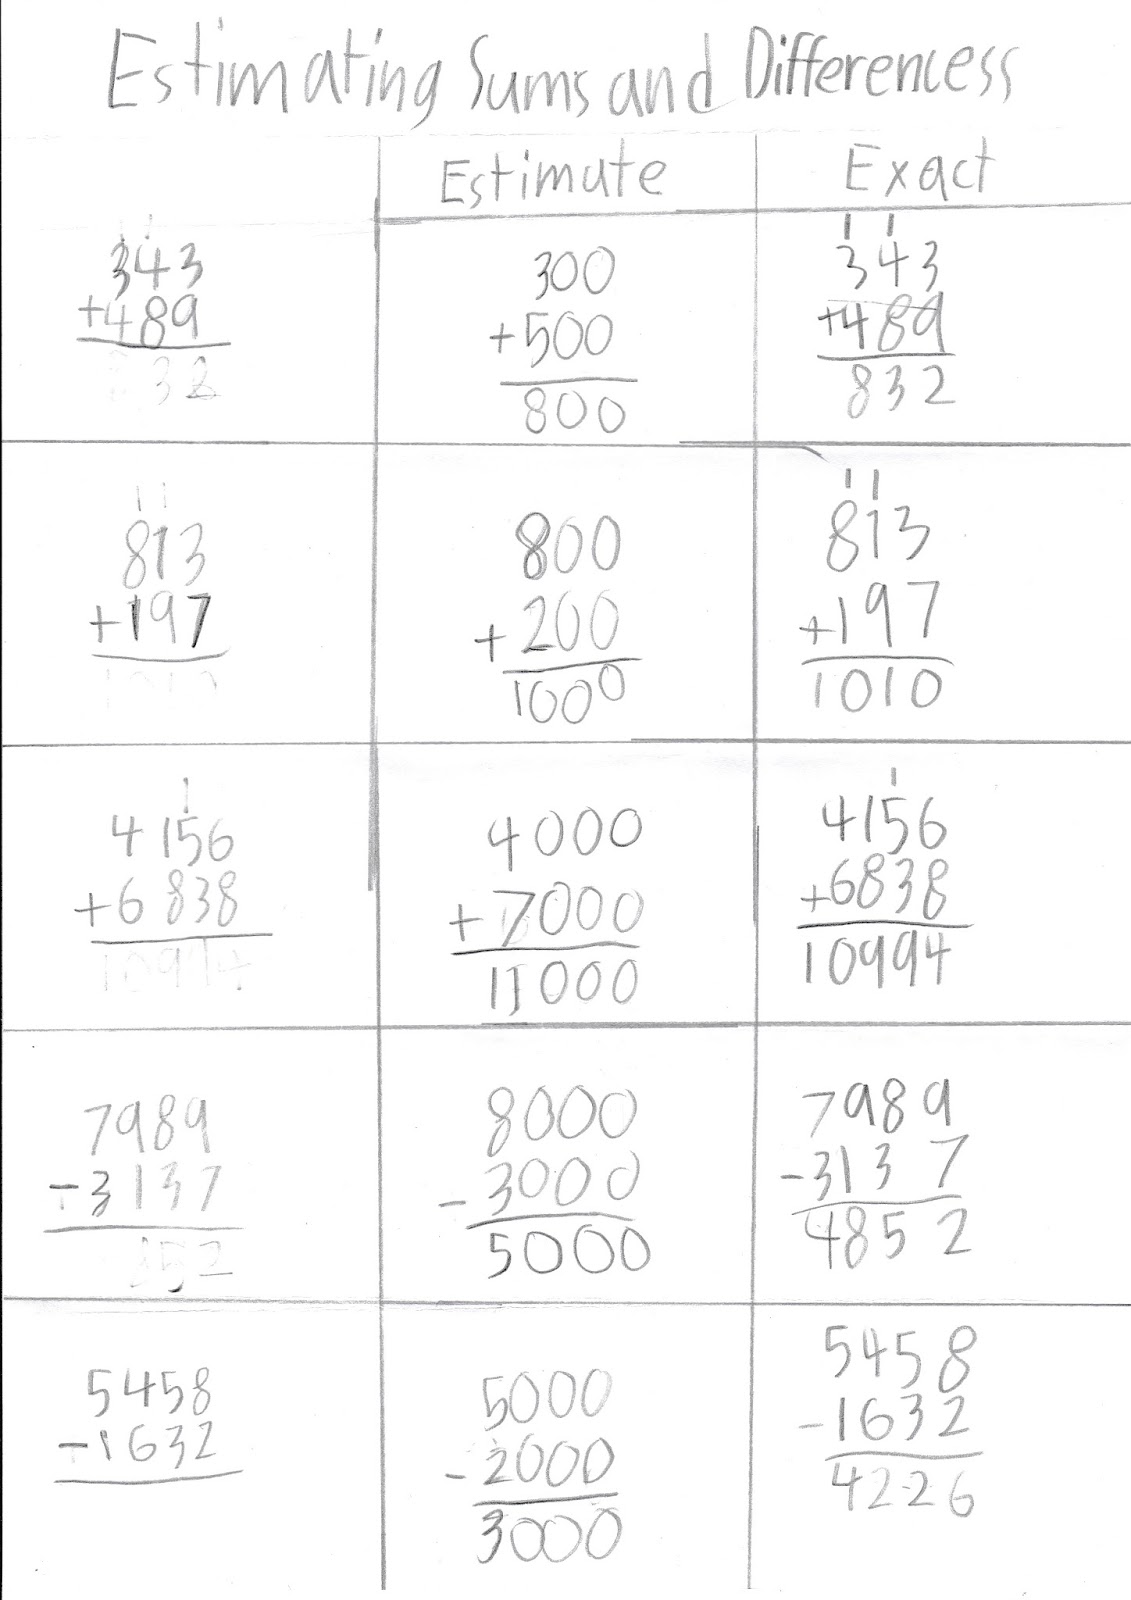 Estimating Sums and Differencess
Estimate
Exact
343
+489
300
+500
800
1 1
343
+489
832
1 1
813
+197
800
+200
1000
1 1
813
+197
1010
1
4156
+6838
10994
4000
+7000
11000
1
4156
+6838
10994
7989
-3137
8000
-3000
5000
7989
-3137
4852
5458
-1632
5000
-2000
3000
5458
-1632
4226